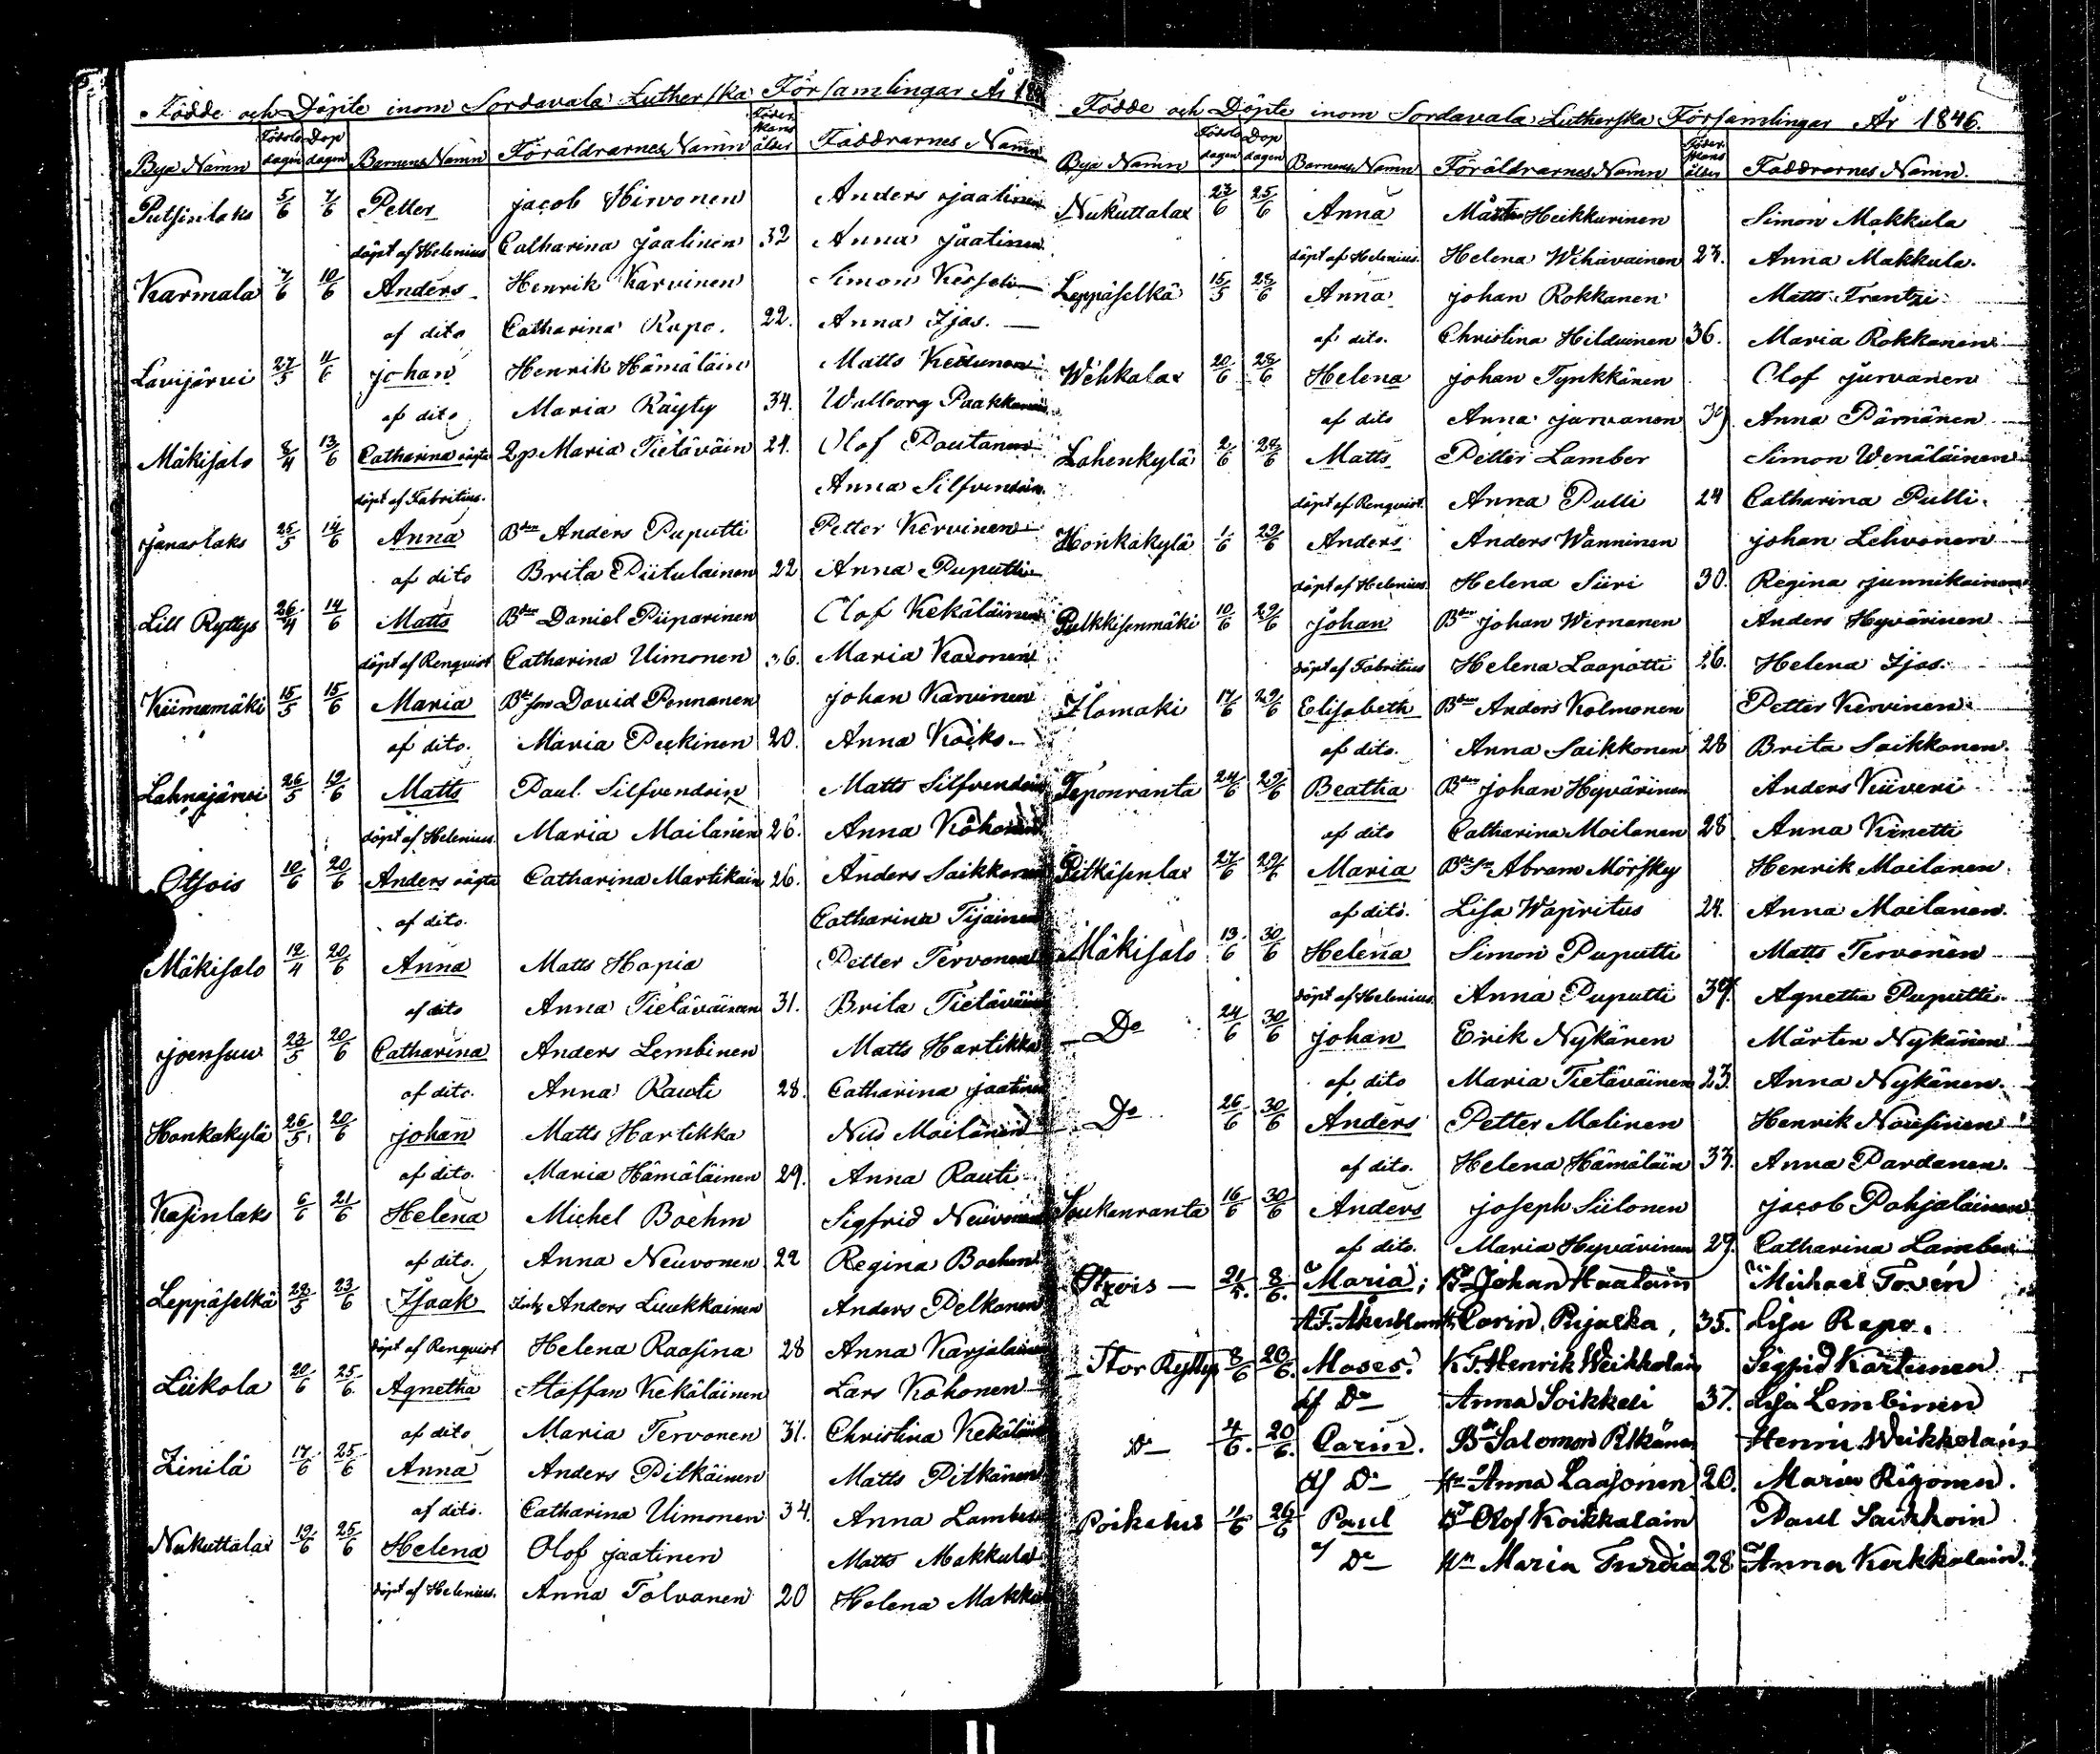 Födde och Döpte inom Sordavala Lutherska Församlingar År 184
Bya Namn Födelsedagen Dopdagen Barnens Namn Föräldrarnes Namn Föderskans ålder Faddrarnes Namn
Putsinlaks 5/6 7/6 Petter Jacob Hirvonen Anders Jaatinen
döpt af Helenius Catharina Jaatinen 32 Anna Jaatinen
Karmala 7/6 10/6 Anders Henrik Karvinen Simon Kesseli
af dito Catharina Repo. 22. Anna Ijas.
Lavijärvi 27/5 11/6 Johan Henrik Hämäläin Matts Kettunen
af dito Maria Räyty 34. Wallborg Paakkunain
Mäkisalo 8/4 13/6 Catharina oägta Qp Maria Tietäväin 24. Olof Pautanen
döpt af Fabritius. Anna Silfvendoin
Jänaslaks 25/5 14/6 Anna Bden Anders Puputti Petter Kervinen
af dito Brita Piitulainen 22 Anna Puputti
Lill Ryttys 26/4 14/6 Matts Bden Daniel Piiparinen Olof Kekäläinen
döpt af Renqvist Catharina Uimonen 36. Maria Kaxonen
Kiimamäki 15/5 15/6 Maria Bdeson David Pennanen Johan Karvinen
af dito. Maria Peckinen 20. Anna Koiko.
Lahnajärvi 26/5 19/6 Matts Paul Silfvendoin Matts Silfvendoin
döpt af Helenius. Maria Moilanen 26. Anna Kokonen
Otsois 10/6 20/6 Anders oägta Catharina Martikain 26. Anders Saikkonen
af dito. Catharina Tijainen
Mäkisalo 12/4 20/6 Anna Matts Hapia Petter Tervonen
af dito Anna Tietäväinen 31. Brita Tietäväinen
Joensuu 23/5 20/6 Catharina Anders Lembinen Matts Hartikka
af dito. Anna Rauti 28. Catharina Jaatinen
Honkakylä 26/5 20/6 Johan Matts Hartikka Nils Moilanen
af dito. Maria Hämäläinen 29. Anna Rauti
Kasinlaks 6/6 21/6 Helena Michel Boehm Sigfrid Neuvonen
af dito. Anna Neuvonen 22 Regina Boehm
Leppäselkä 22/5 23/6 Isaak Inhs Anders Luukkainen Anders Pelkonen
döpt af Renqvist Helena Raasina 28 Anna Karjalainen
Liikola 20/6 25/6 Agnetha Staffan Kekäläinen Lars Kokonen
af dito Maria Tervonen 31. Christina Kekäläinen
Zinilä 17/6 25/6 Anna Anders Pitkäinen Matts Pitkänen
af dito. Catharina Uimonen 34. Anna Lamber
Nukuttalax 19/6 25/6 Helena Olof Jaatinen Matts Makkula
döpt af Helenius. Anna Tolvanen 20 Helena Makkula
Födde och Döpte inom Sordavala Lutherska Församlingar År 1846.
Bya Namn Födelsedagen Dopdagen Barnens Namn Föräldrarnes Namn Föderskans ålder Faddrarnes Namn.
Nukuttalax 23/6 25/6 Anna Mårten Heikkurinen Simon Makkula
döpt af Helenius. Helena Wihavainen 23. Anna Makkula.
Leppäselkä 15/5 28/6 Anna Johan Rokkanen Matts Frantzi
af dito. Christina Hildunen 36. Maria Rokkanen
Wehkalax 20/6 28/6 Helena Johan Tynkkänen Olof Jurvanen
af dito Anna Jurvanen 39. Anna Pärnänen
Lahenkylä 2/6 28/6 Matts Petter Lamber Simon Wenäläinen
döpt af Renqvist. Anna Pulli 24 Catharina Pulli.
Honkakylä 1/6 29/6 Anders Anders Wanninen Johan Lehvonen
döpt af Helenius. Helena Siiri 30. Regina Junnikainen
Pulkkisenmäki 10/6 29/6 Johan Bden Johan Wernanen Anders Hyvärinen
döpt af Fabritius Helena Laapotti 26. Helena Ijas.
Ilomäki 17/6 29/6 Elisabeth Bden Anders Kolmonen Petter Kervinen
af dito. Anna Saikkonen 28 Brita Saikkonen.
Teponranta 24/6 29/6 Beatha Bden Johan Hyvärinen Anders Kiiveri
af dito Catharina Moilanen 28 Anna Kinetti
Pitkäsenlax 27/6 29/6 Maria Bdeson Abram Mörsky Henrik Moilanen
af dito. Lisa Wapritus 24. Anna Moilanen.
Mäkisalo 13/6 30/6 Helena Simon Puputti Matts Tervonen
döpt af Helenius. Anna Puputti 39. Agnetha Puputti.
Do 24/6 30/6 Johan Erik Nykänen Mårten Nykänen
af dito Maria Tietäväinen 23. Anna Nykänen.
Do 26/6 30/6 Anders Petter Malinen Henrik Nousinen
af dito. Helena Hämäläin 33. Anna Pardanen.
Soukanranta 16/6 30/6 Anders Joseph Siilonen Jacob Pohjaläinen
af dito. Maria Hyvärinen 29. Catharina Lamber
Otzois 21/5. 8/6. Maria; Johan Haatain Michael Tovén
Carin Pujalka, 35. Lisa Repo.
Stor Ryttys 8/6 20/6. Moses. Henrik Weikkolain Sigfrid Kärtunen
af Do Anna Soikkeli 37. Lisa Lembinen
Do 4/6. 20/6. Carin. Bde Salomon Pitkänen Henric Weikkolain
af Do Hn Anna Laasonen 20. Maria Rigonen.
Poikelus 11/6 26/6 Paul Olof Koikkalain Paul Saikkoin
af Do Hn Maria Turdia 28 Anna Kerkkolain.